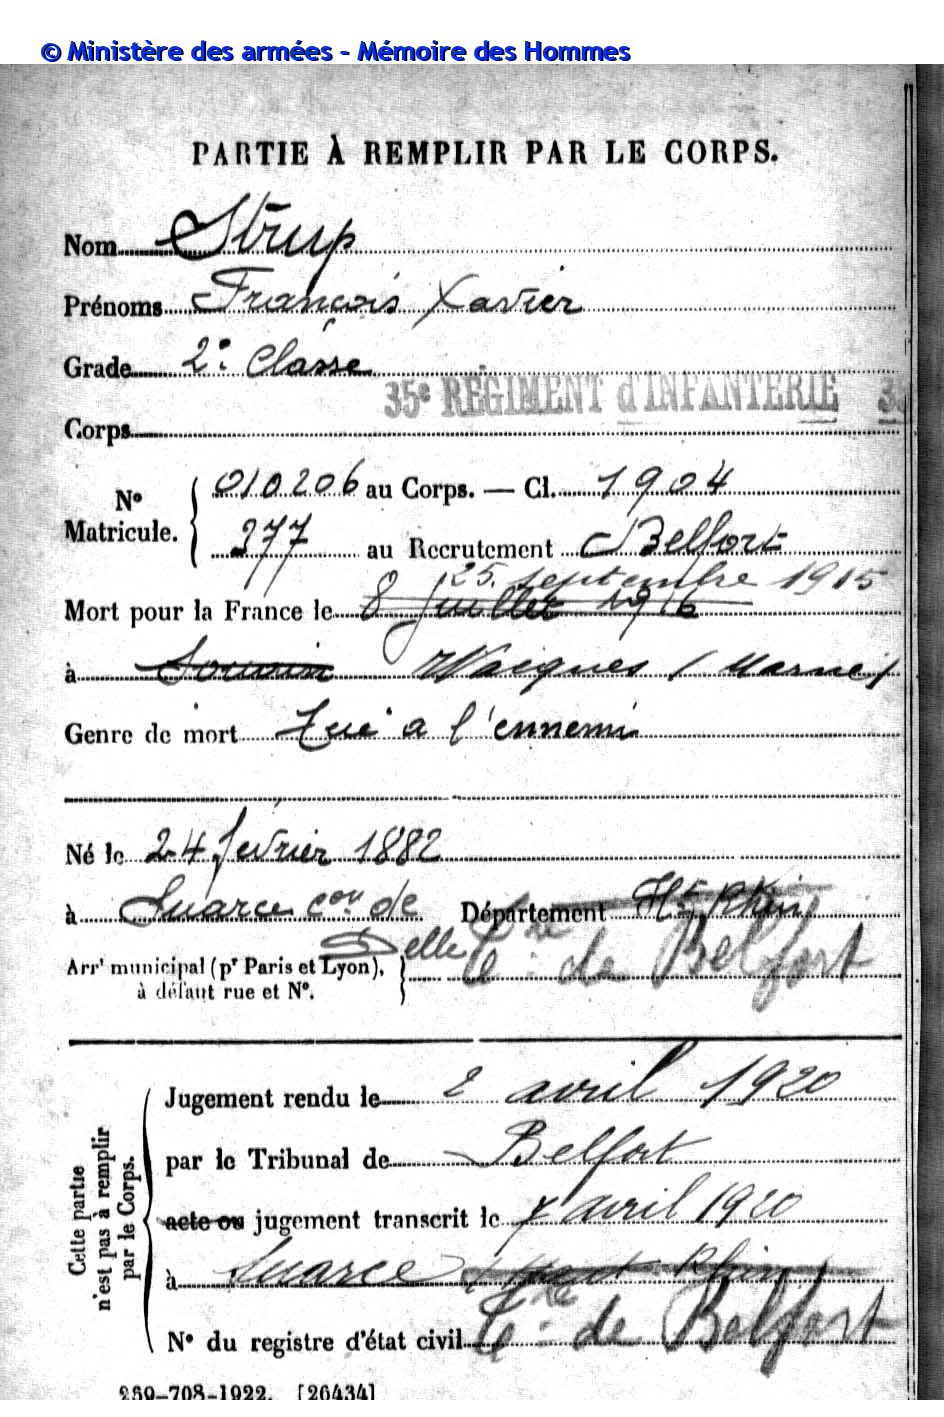 © Ministère des armées - Mémoire des Hommes
PARTIE À REMPLIR PAR LE CORPS.
Nom Strup
Prénoms François Xavier
Grade 2e Classe
35e RÉGIMENT d'INFANTERIE 35
Corps
No Matricule. 010206 au Corps. — Cl. 1904
377 au Recrutement Belfort
25 septembre 1915
Mort pour la France le 8 juillet 1916
à Souain Wacques (Marne)
Genre de mort Tué à l'ennemi
Né le 24 février 1882
à Suarce con de Delle Département Ht Rhin
Arrt municipal (pr Paris et Lyon), à défaut rue et No. Tre de Belfort
Cette partie n'est pas à remplir par le Corps.
Jugement rendu le 2 avril 1920
par le Tribunal de Belfort
acte ou jugement transcrit le 7 avril 1920
à Suarce Haut Rhin
No du registre d'état civil Tre de Belfort
259-708-1922. [26434]